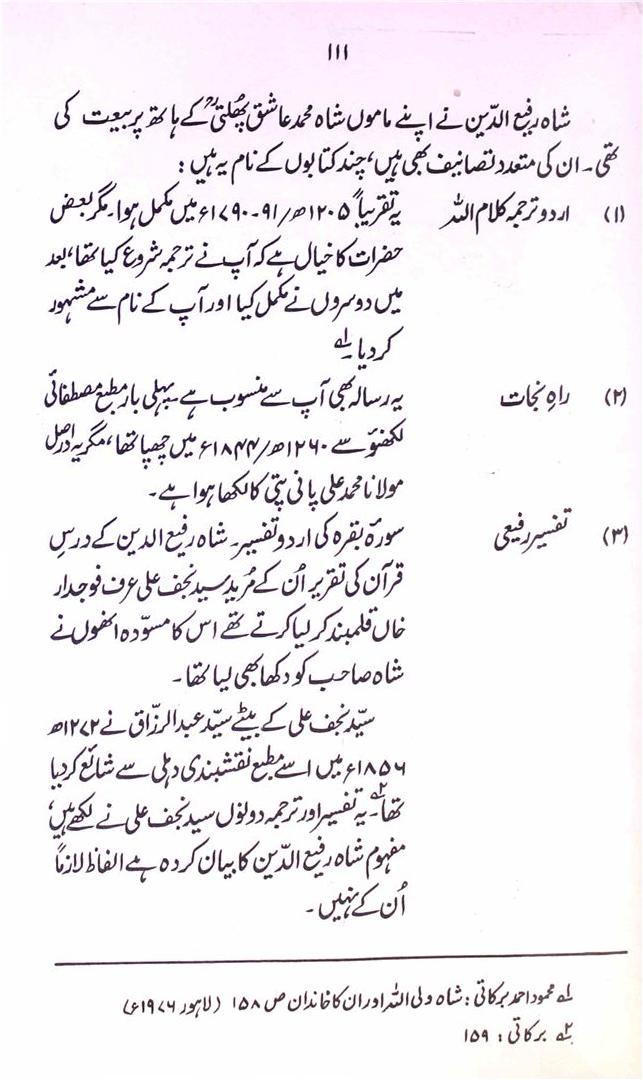 ۱۱۱
شاہ رفیع الدّین نے اپنے ماموں شاہ محمد عاشق پھُلتیؒ کے ہاتھ پر بیعت کی
تھی۔ ان کی متعدد تصانیف بھی ہیں، چند کتابوں کے نام یہ ہیں:
(۱) اردو ترجمہ کلام اللہ یہ تقریباً ۱۲۰۵ھ/۹۱۔۱۷۹۰ء میں مکمل ہوا۔ مگر بعض
حضرات کا خیال ہے کہ آپ نے ترجمہ شروع کیا تھا، بعد
میں دوسروں نے مکمل کیا اور آپ کے نام سے مشہور
کر دیا۔ ۱ے
(۲) راہِ نجات یہ رسالہ بھی آپ سے منسوب ہے۔ پہلی بار مطبع مصطفائی
لکھنؤ سے ۱۲۶۰ھ/۱۸۴۴ء میں چھپا تھا، مگر یہ دراصل
مولانا محمد علی پانی پتی کا لکھا ہوا ہے۔
(۳) تفسیر رفیعی سورۂ بقرہ کی اردو تفسیر۔ شاہ رفیع الدین کے درسِ
قرآن کی تقریر اُن کے مُرید سید نجف علی عرف فوجدار
خاں قلمبند کر لیا کرتے تھے اس کا مسوّدہ انھوں نے
شاہ صاحب کو دکھا بھی لیا تھا۔
سیّد نجف علی کے بیٹے سیّد عبد الرزّاق نے ۱۲۷۲ھ
۱۸۵۶ء میں اسے مطبع نقشبندی دہلی سے شائع کر دیا
تھا۔ ۲ے یہ تفسیر اور ترجمہ دونوں سید نجف علی نے لکھے ہیں،
مفہوم شاہ رفیع الدّین کا بیان کردہ ہے الفاظ لازماً
اُن کے نہیں۔
۱ے محمود احمد برکاتی: شاہ ولی اللہ اور ان کا خاندان ص ۱۵۸ (لاہور ۱۹۷۶ء)
۲ے برکاتی: ۱۵۹